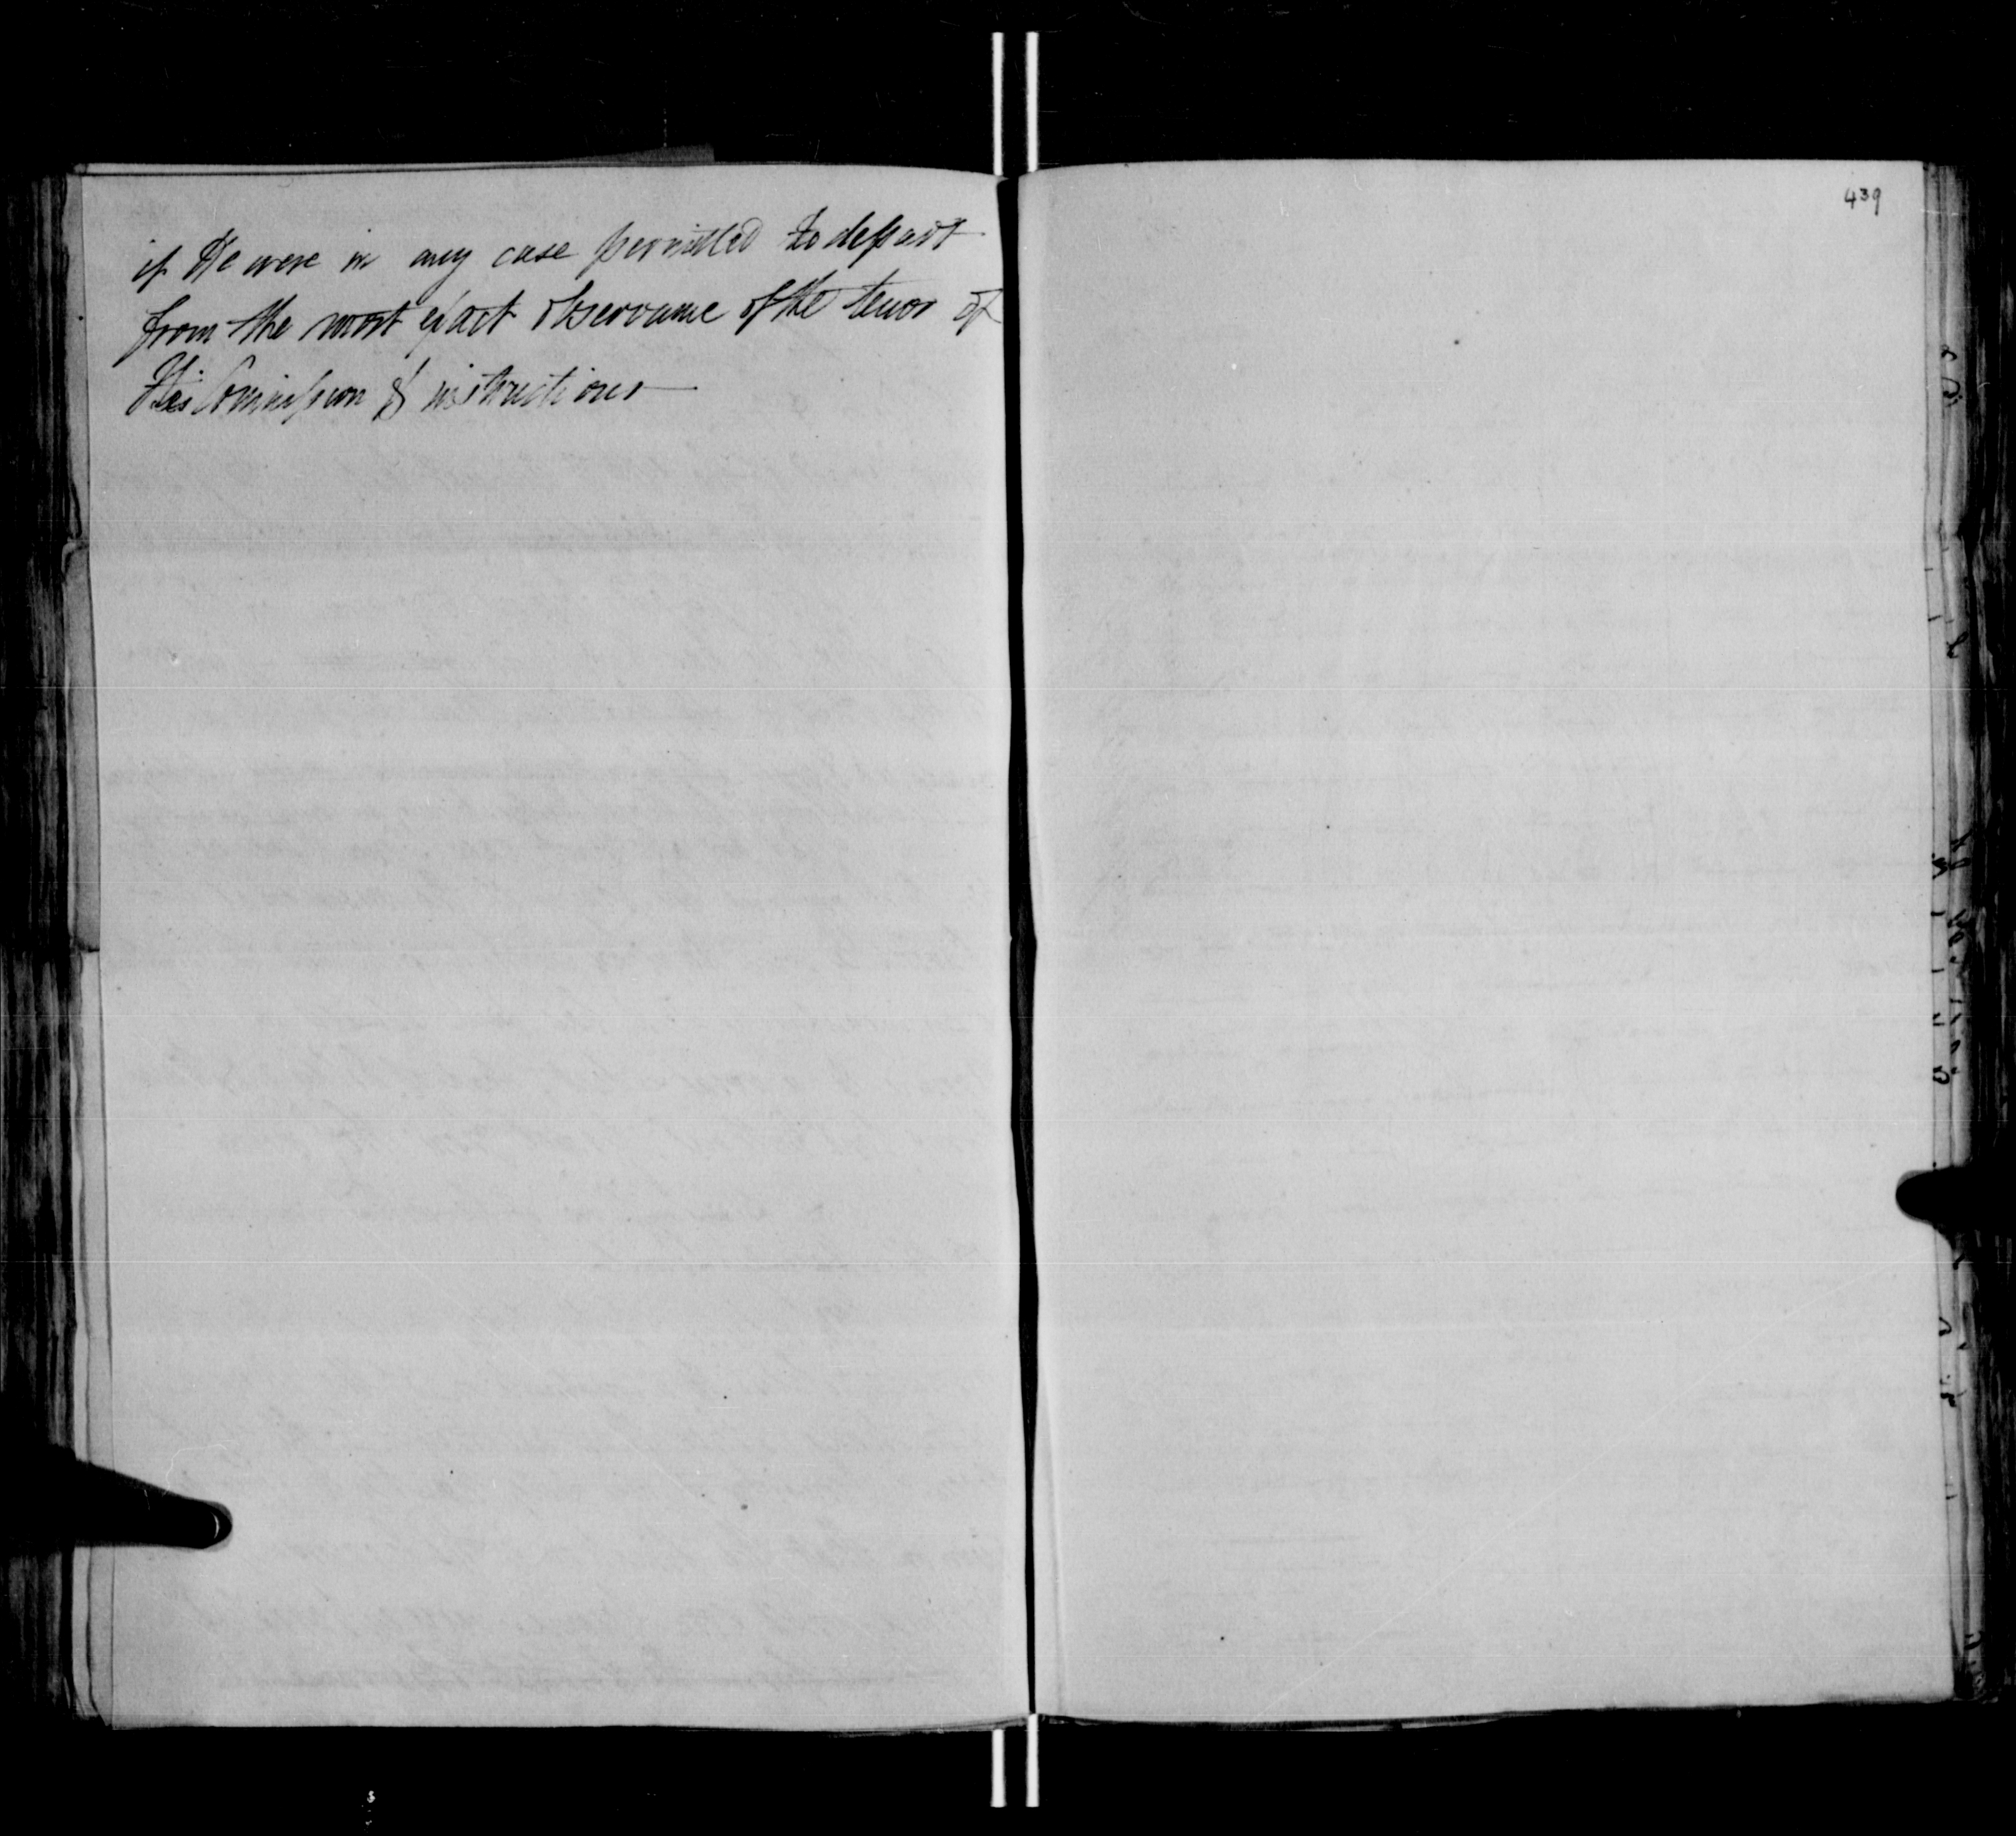 if He were in any case permitted to depart
from the most exact observance of the tenor of
His Commission & instructions—
439